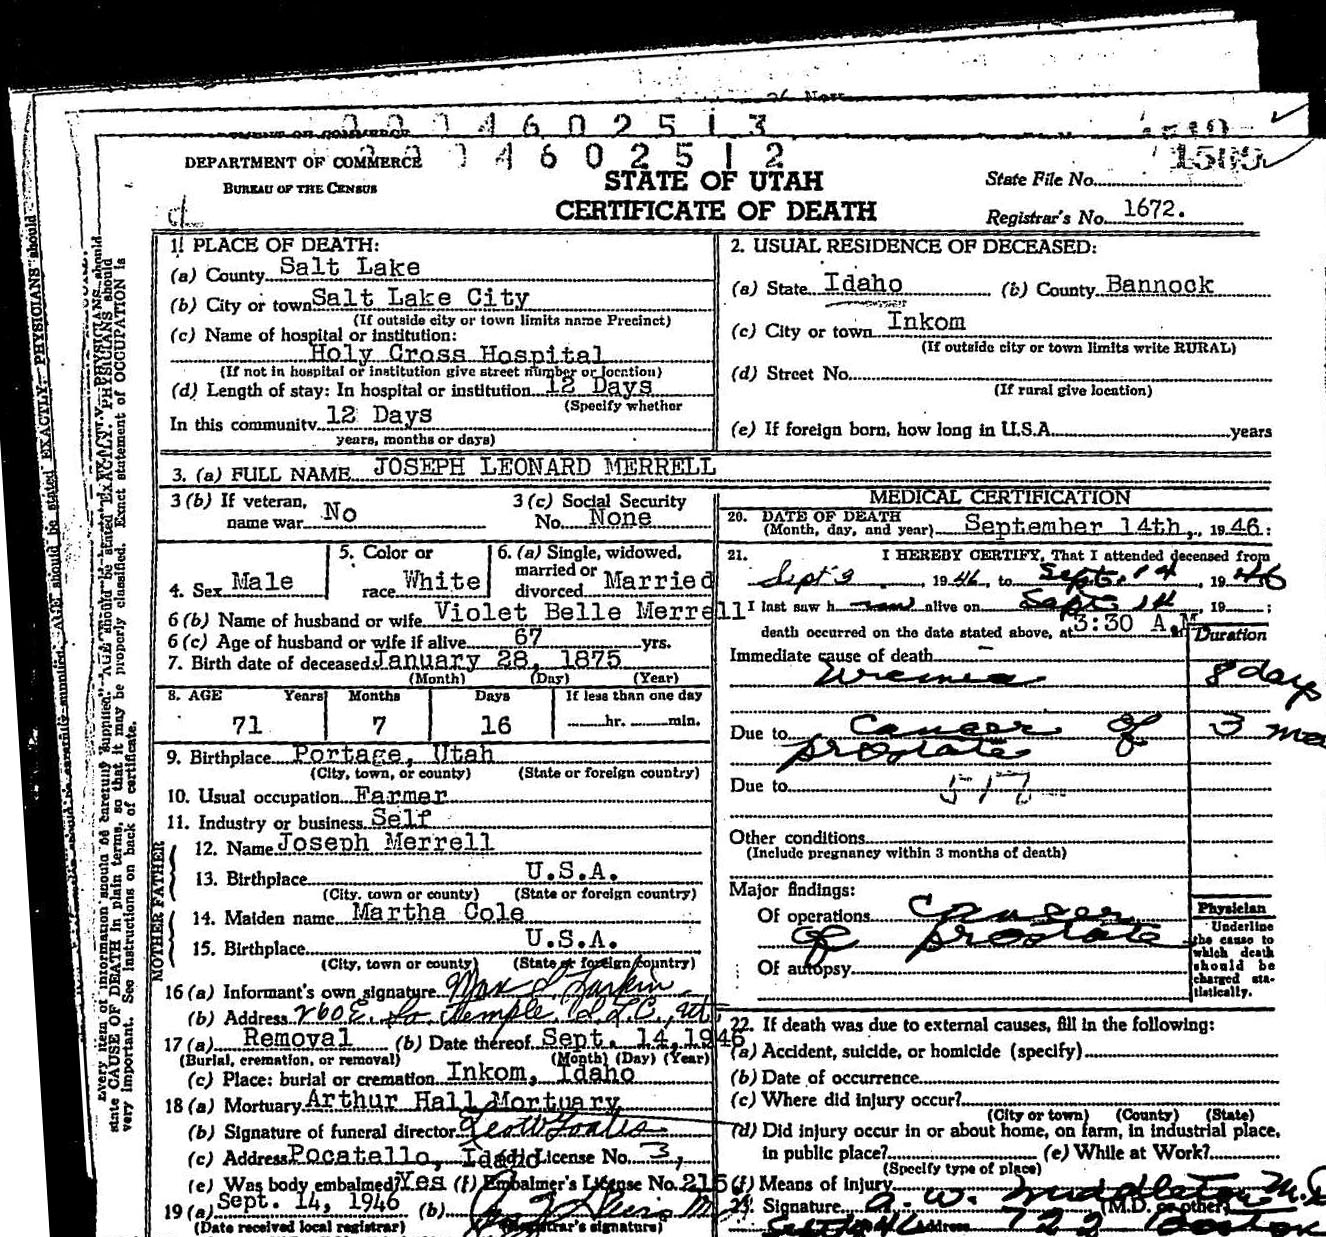 0004602513
0004602512
DEPARTMENT OF COMMERCE
BUREAU OF THE CENSUS
STATE OF UTAH
CERTIFICATE OF DEATH
State File No.
Registrar's No. 1672.
1. PLACE OF DEATH:
(a) County Salt Lake
(b) City or town Salt Lake City
(If outside city or town limits name Precinct)
(c) Name of hospital or institution:
Holy Cross Hospital
(If not in hospital or institution give street number or location)
(d) Length of stay: In hospital or institution 12 Days
(Specify whether
In this community 12 Days
years, months or days)
2. USUAL RESIDENCE OF DECEASED:
(a) State Idaho (b) County Bannock
(c) City or town Inkom
(If outside city or town limits write RURAL)
(d) Street No.
(If rural give location)
(e) If foreign born, how long in U.S.A. years
3. (a) FULL NAME JOSEPH LEONARD MERRELL
3 (b) If veteran, name war No
3 (c) Social Security No. None
4. Sex Male
5. Color or race White
6. (a) Single, widowed, married or divorced Married
6 (b) Name of husband or wife Violet Belle Merrell
6 (c) Age of husband or wife if alive 67 yrs.
7. Birth date of deceased January 28, 1875
(Month) (Day) (Year)
8. AGE Years Months Days If less than one day
71 7 16 hr. min.
9. Birthplace Portage, Utah
(City, town, or county) (State or foreign country)
10. Usual occupation Farmer
11. Industry or business Self
FATHER
12. Name Joseph Merrell
13. Birthplace U.S.A.
(City, town or county) (State or foreign country)
MOTHER
14. Maiden name Martha Cole
15. Birthplace U.S.A.
(City, town or county) (State or foreign country)
16 (a) Informant's own signature Mrs Larkin
(b) Address 260 E. So. Temple S.L.C., Ut
17 (a) Removal (b) Date thereof Sept. 14, 1946
(Burial, cremation, or removal) (Month) (Day) (Year)
(c) Place: burial or cremation Inkom, Idaho
18 (a) Mortuary Arthur Hall Mortuary
(b) Signature of funeral director
(c) Address Pocatello, Idaho License No. 3,
(e) Was body embalmed? Yes (f) Embalmer's License No. 215
19 (a) Sept. 14, 1946 (b)
(Date received local registrar) (Registrar's signature)
MEDICAL CERTIFICATION
20. DATE OF DEATH
(Month, day, and year) September 14th, 1946:
21. I HEREBY CERTIFY, That I attended deceased from
Sept 9, 1946, to Sept. 14, 1946
I last saw h alive on Sept 14, 19 ;
death occurred on the date stated above, at 3:30 A.M
Duration
Immediate cause of death
Uremia 8 days
Due to Cancer of 3 mo
prostate
Due to
517
Other conditions
(Include pregnancy within 3 months of death)
Major findings:
Of operations Cancer
of prostate
Of autopsy
Physician
Underline
the cause to
which death
should be
charged sta-
tistically.
22. If death was due to external causes, fill in the following:
(a) Accident, suicide, or homicide (specify)
(b) Date of occurrence
(c) Where did injury occur?
(City or town) (County) (State)
(d) Did injury occur in or about home, on farm, in industrial place,
in public place? (e) While at Work?
(Specify type of place)
(f) Means of Injury
23. Signature A. W. Middleton M.D.
(M.D. or other)
Address 722 Boston
Every item of information should be carefully supplied. AGE should be stated EXACTLY. PHYSICIANS should
state CAUSE OF DEATH in plain terms, so that it may be properly classified. Exact statement of OCCUPATION is
very important. See instructions on back of certificate.